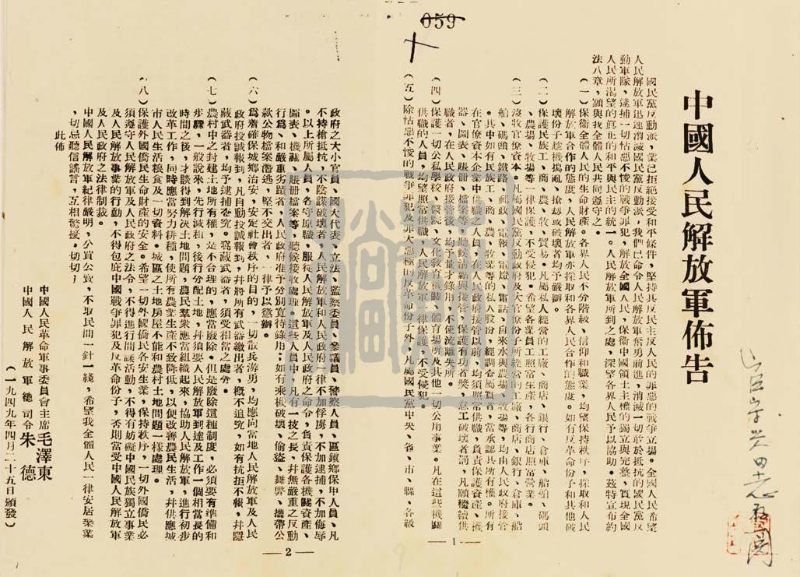 059
中國人民解放軍佈告
國民黨反動派，業已拒絕接受和平條件，堅持其反民主反人民的罪惡的戰爭立場。全國人民希望
人民解放軍迅速消滅國民黨反動派。我們已命令人民解放軍奮勇前進，消滅一切敢於抵抗的國民黨反
動軍隊，逮捕一切怙惡不悛的戰爭罪犯，解放全國人民，保衛中國領土主權的獨立與完整，實現全國
人民所渴望的真正的和平與民主的統一。人民解放軍所到之處，深望各界人民予以協助。茲特宣布約
法八章，願與我全體人民共同遵守之。
（一）保衛全體人民的生命財產。各界人民不分階級、信仰和職業，均望保持秩序，採取和人民
解放軍合作的態度。人民解放軍亦採取和各界人民合作的態度。如有反革命份子和其他破
壞份子趁機搗亂、搶刼或破壞者均予嚴辦。
（二）保護民族工、商、農、牧、貿易。凡屬私人經營的工廠、商店、銀行、倉庫、船舶、碼頭
、農場、牧場等，一律保護，不受侵犯。希望各業員工照常生產，各行商店照常營業。
（三）沒收官僚資本。凡屬國民黨反動政府及大官僚份子所經營的工廠、商店、銀行、倉庫、船
舶、碼頭、鐵路、郵政、電報、電燈、電話、自來水與農場、牧場等，均由人民政府接管
。其中如有民族工、商、農、牧業者私人股份經調查屬實者，當承認其所有權。所有
在官僚資本企業中供職的人員，在人民政府接管以前，均須照常供職，負責保護資產、機
器、圖表、賬册、檔案等，聽候清點接收。保護有功者獎，怠工破壞者罰。凡願繼續供
職者，在人民政府接管後，均予量才錄用，不使流離失所。
（四）保護一切公私學校、醫院、文化教育機關、體育場所及其他一切公用事業。凡在這些機關
供職的人員，均望照常供職，人民解放軍一律保護，不受侵犯。
（五）除怙惡不悛的戰爭罪犯及罪大惡極的反革命份子外，凡屬國民黨中央、省、市、縣、各級
—1—
政府之大小官員、國大代表、立法、監察委員、參議員、警察人員、區鎮鄉保甲人員，凡
不持槍抵抗，不陰謀破壞者，人民解放軍和人民政府一律不加俘虜，不加逮捕，不加侮辱
。以上所屬人員，各守原職，服從人民解放軍及人民政府之命令，負責保護各機關資產、
圖表、機器、賬册檔案等，聽候接收處理。這些人員中，凡有一技之長，幷無嚴重之反動
行爲，和嚴重劣跡者，人民政府准予分別寬待錄用；如有乘機破壞、偷盜、舞弊、攜帶公
欵公物檔案潛逃，堅不交出者，一律予以懲辦。
（六）爲着確保城鄉治安，安定社會秩序的目的，一切散兵游勇，均應向當地人民解放軍及人民
政府投誠報到，凡自動投誠報到，幷將所有武器繳出者，概不追究。如有抗拒不報，幷隱
藏武器者，均予逮捕查究。窩藏武器者，須受相當之處分。
（七）農村中之封建土地所有權，是不合理的，應當廢除。但是廢除這種制度，必須要有準備和
步驟。一般說來，先行減租，後行分配土地，幷須要人民解放軍到達及工作一個相當長的
時間之後，才談得到解決土地問題，農民羣衆應當組織起來，協助人民解放軍，進行初步
改革工作，同時應當努力耕種，使所有農業生產不致降低，以便改善農民生活，幷供應城
市人民生活糧食及一切資料。城區之土地房屋不能和農村土地問題一樣處理。
（八）保護外國僑民生命財產的安全。希望一切外國僑民各安生業，保持秩序。一切外國僑民必
須遵守人民解放軍及人民政府之法令，不得進行間諜活動，不得有妨礙中國民族獨立事業
及人民解放事業的行動，不得包庇中國戰爭罪犯及反革命份子，否則當受中國人民解放軍
及人民政府之法律制裁。
中國人民解放軍紀律嚴明，公買公賣，不取民間一針一綫，希望我全體人民一律安居樂業
，切忌聽信謠言，互相驚擾。切切！
此佈
中國人民革命軍事委員會主席 毛澤東
中國人民解放軍總司令 朱德
（一九四九年四月二十五日頒發）
—2—